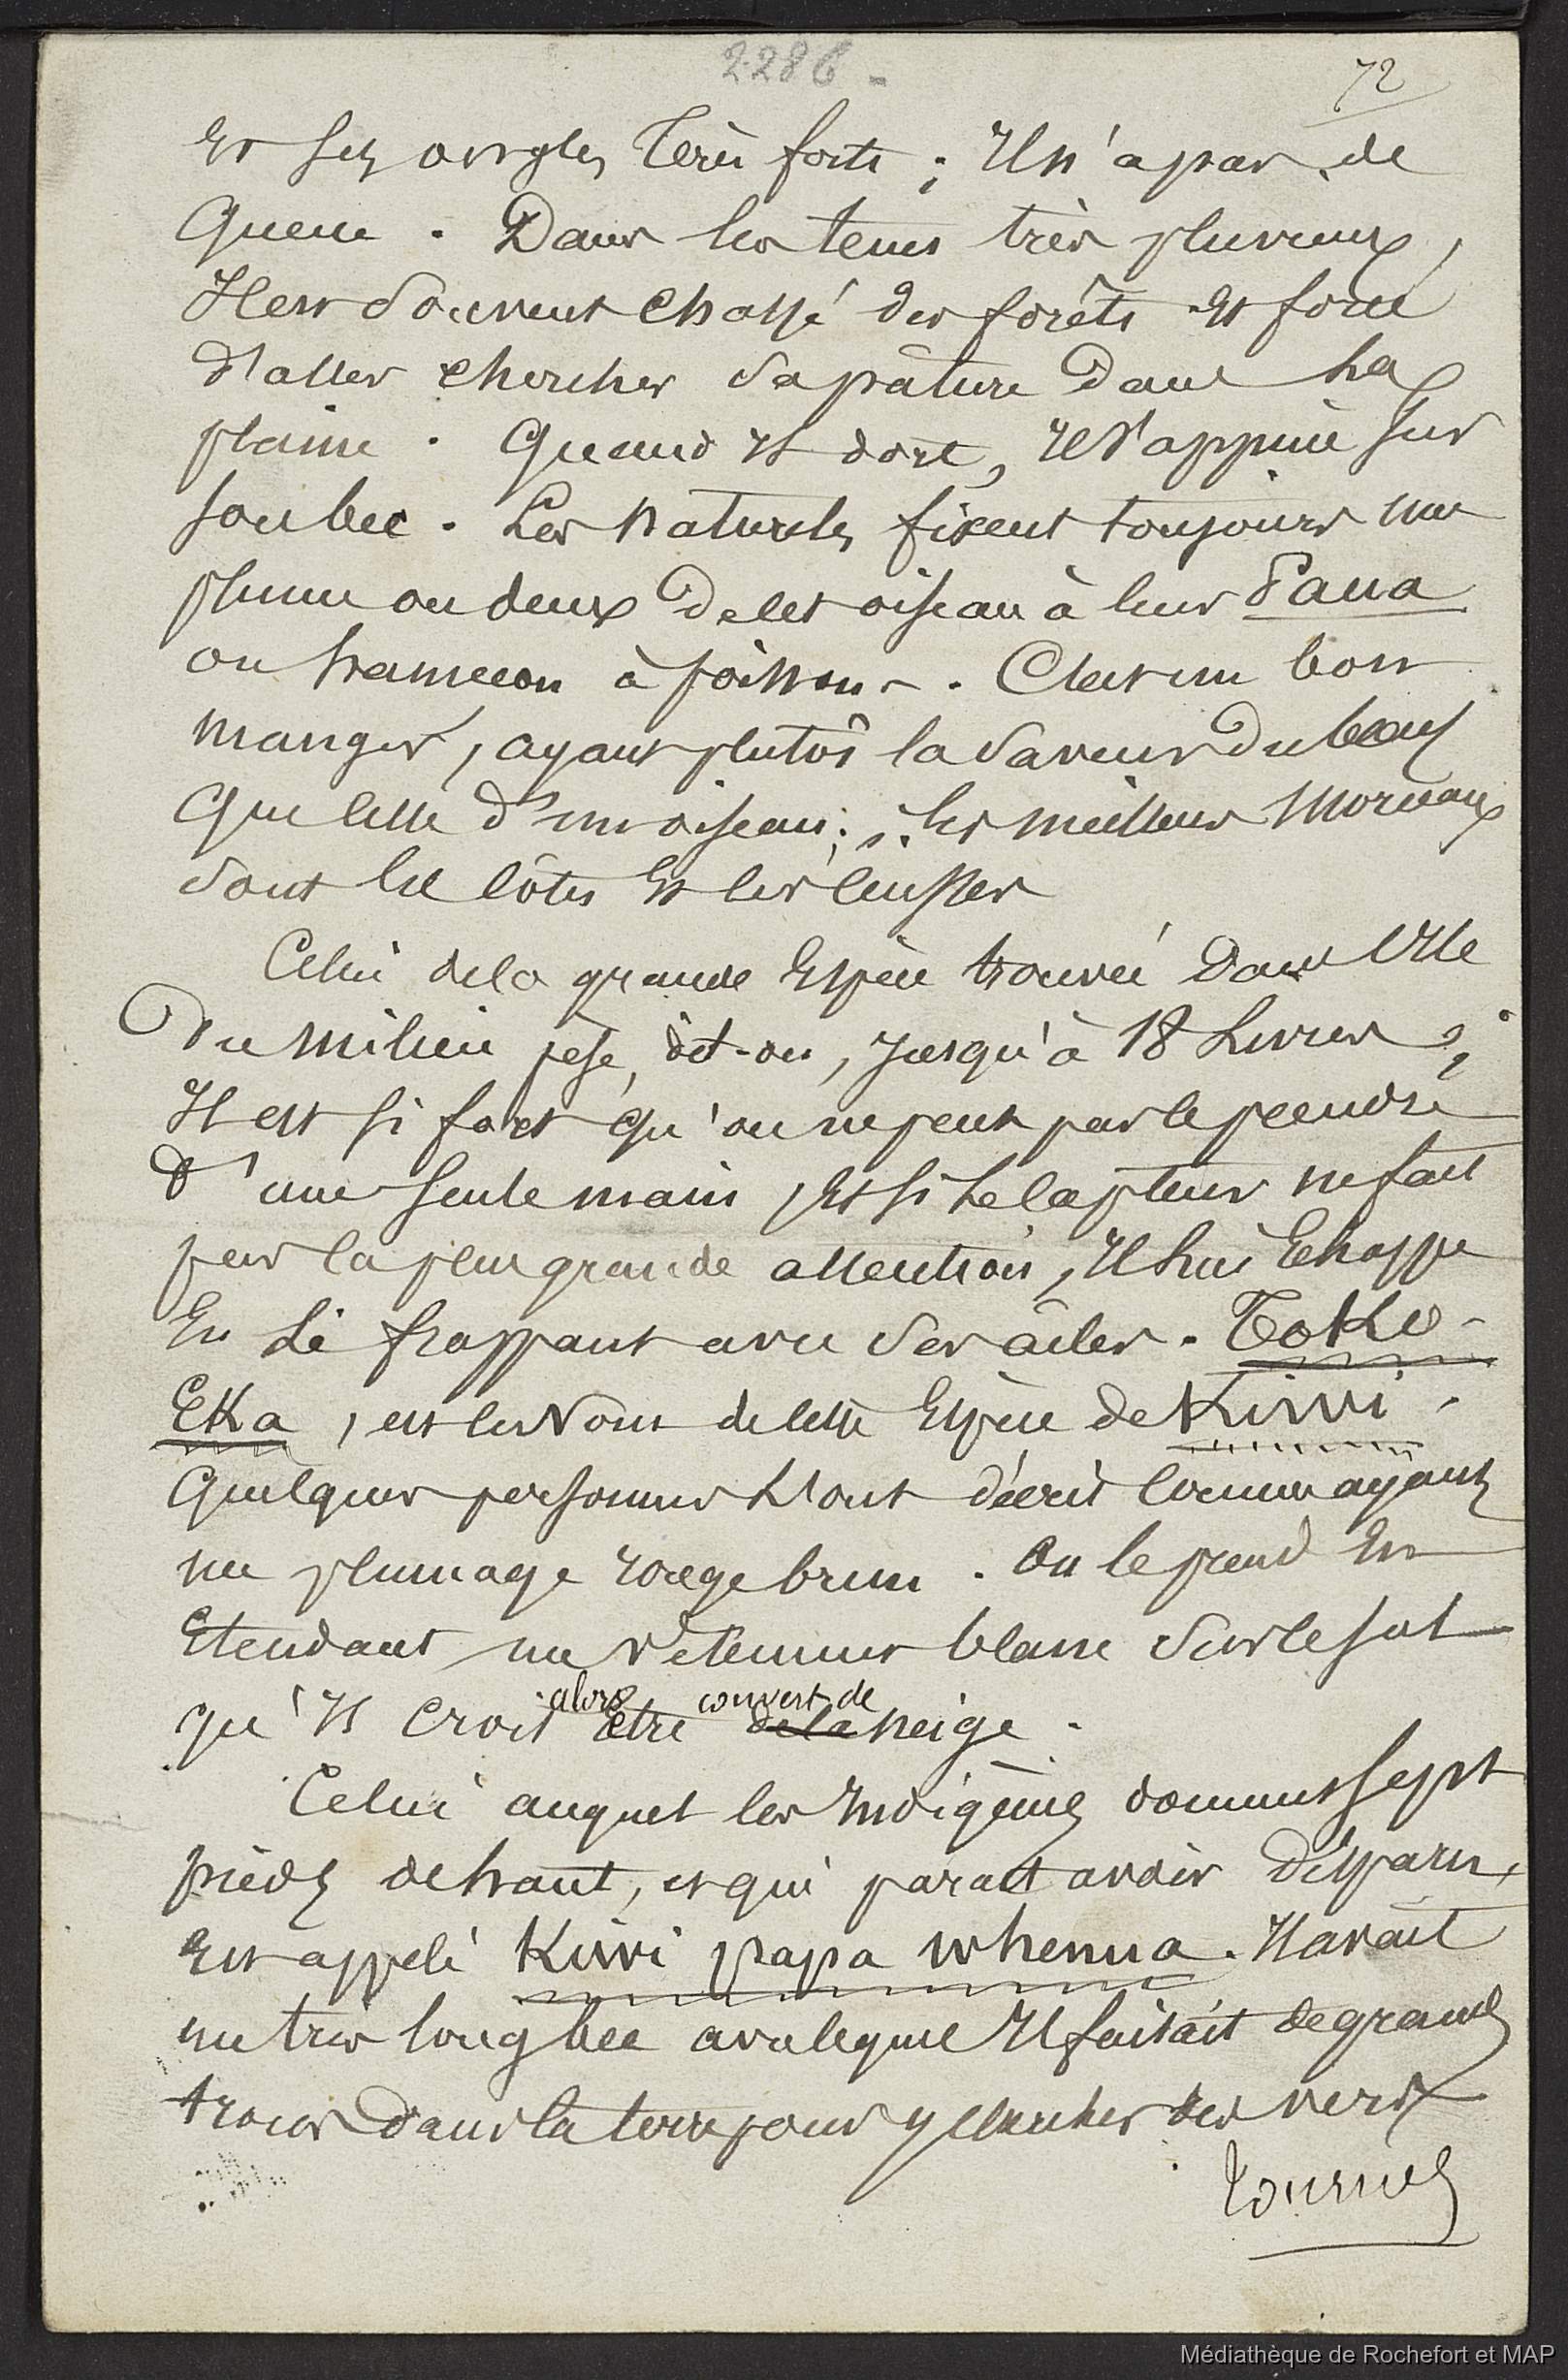 2286 -
72
Et ses ongles très forts ; Il n'a pas de
Queue . Dans les tems très pluvieux,
Il est Souvent Chassé des forêts Et forcé
d'aller chercher Sa pâture Dans La
plaine . Quand Il dort, Il S'appuie Sur
Son bec . Les Naturels fixent toujours une
plume ou deux De cet oiseau à leur Paua
ou hameçon à poissons . C'est un bon
manger, ayant plutôt la Saveur Du bœuf
Que celle d'un oiseau ; les meilleurs Morceaux
Sont les côtes Et les cuisses
Celui de la grande Espèce trouvée Dans l'Ile
Du Milieu pèse, dit-on, Jusqu'à 18 Livres ;
Il est si fort Qu'on ne peut pas le prendre
D'une Seule main, Et si Le capteur ne fait
pas la plus grande attention, Il lui Echappe
En Le frappant avec Ses ailes . Toko-
Eka, est le Nom de cette Espèce de Kiwi .
Quelques personnes L'ont décrit Comme ayant
un plumage rouge brun . On le prend En
Etendant un Vêtement blanc Sur le sol
qu'Il Croit alors être de la couvert de neige .
Celui auquel les Indigènes donnent Sept
pieds de haut, et qui parait avoir disparu,
Est appelé Kiwi papa whenua . Il avait
un très long bec avec lequel Il faisait de grands
trous dans la terre pour y chercher des vers
Tournez
Médiathèque de Rochefort et MAP